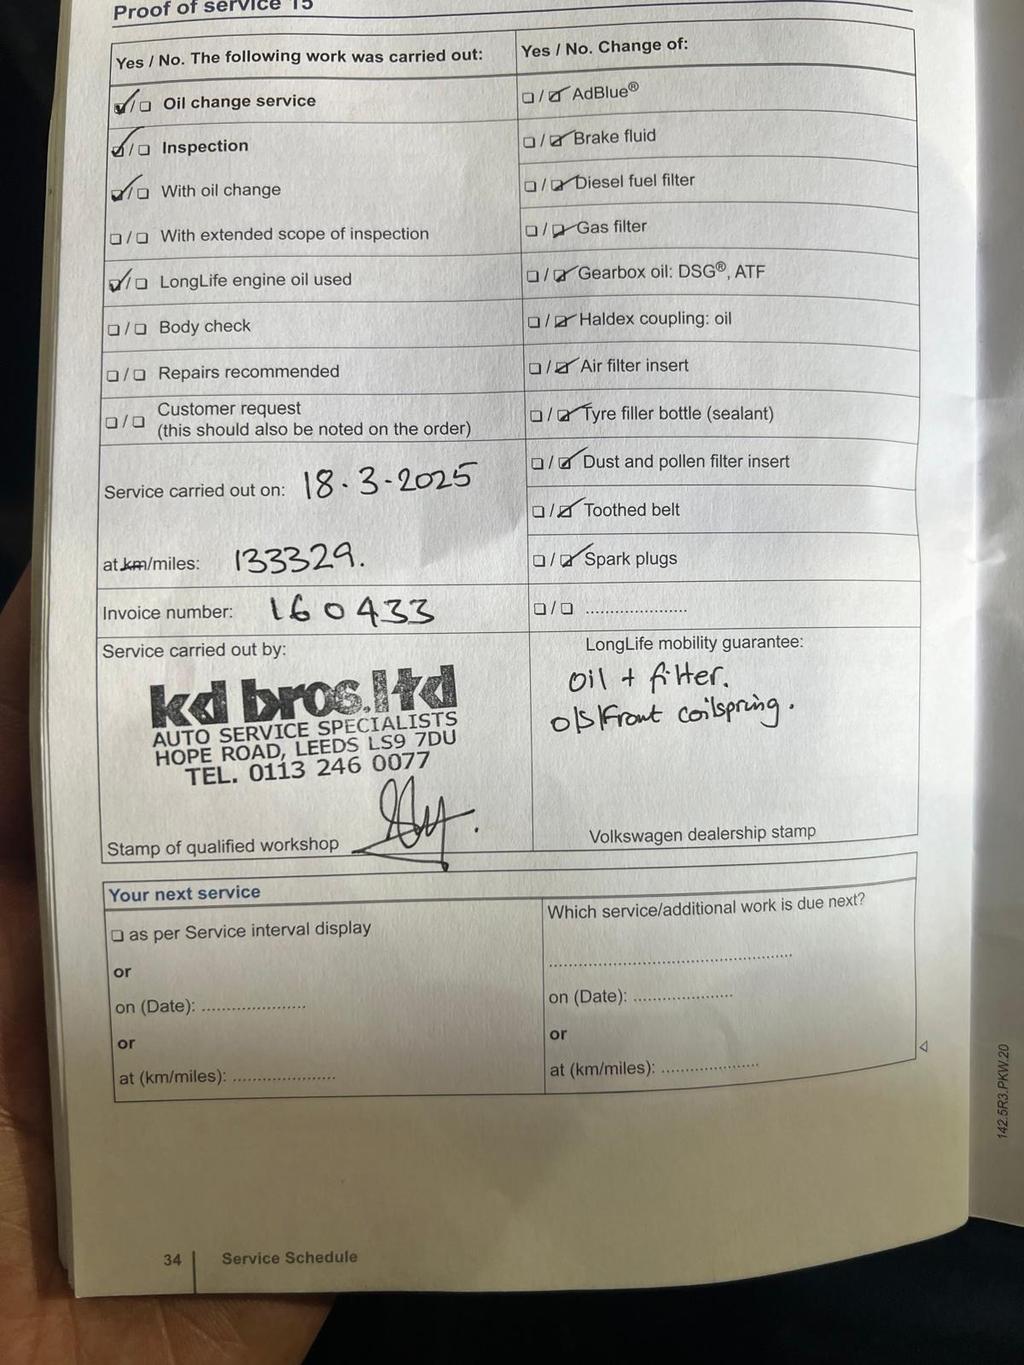 Proof of service 15
Yes / No. The following work was carried out:
☑/☐ Oil change service
☑/☐ Inspection
☑/☐ With oil change
☐/☐ With extended scope of inspection
☑/☐ LongLife engine oil used
☐/☐ Body check
☐/☐ Repairs recommended
☐/☐ Customer request
(this should also be noted on the order)
Service carried out on: 18.3-2025
at km/miles: 133329.
Invoice number: 160433
Service carried out by:
kd bros.ltd
AUTO SERVICE SPECIALISTS
HOPE ROAD, LEEDS LS9 7DU
TEL. 0113 246 0077
Stamp of qualified workshop
Yes / No. Change of:
☐/☑ AdBlue®
☐/☑ Brake fluid
☐/☑ Diesel fuel filter
☐/☑ Gas filter
☐/☑ Gearbox oil: DSG®, ATF
☐/☑ Haldex coupling: oil
☐/☑ Air filter insert
☐/☑ Tyre filler bottle (sealant)
☐/☑ Dust and pollen filter insert
☐/☑ Toothed belt
☐/☑ Spark plugs
☐/☐ .....................
LongLife mobility guarantee:
oil + filter.
o/s/Front coilspring.
Volkswagen dealership stamp
Your next service
☐ as per Service interval display
or
on (Date): .....................
or
at (km/miles): .....................
Which service/additional work is due next?
..................................................
on (Date): .....................
or
at (km/miles): .....................
142.5R3.PKW.20
34 Service Schedule